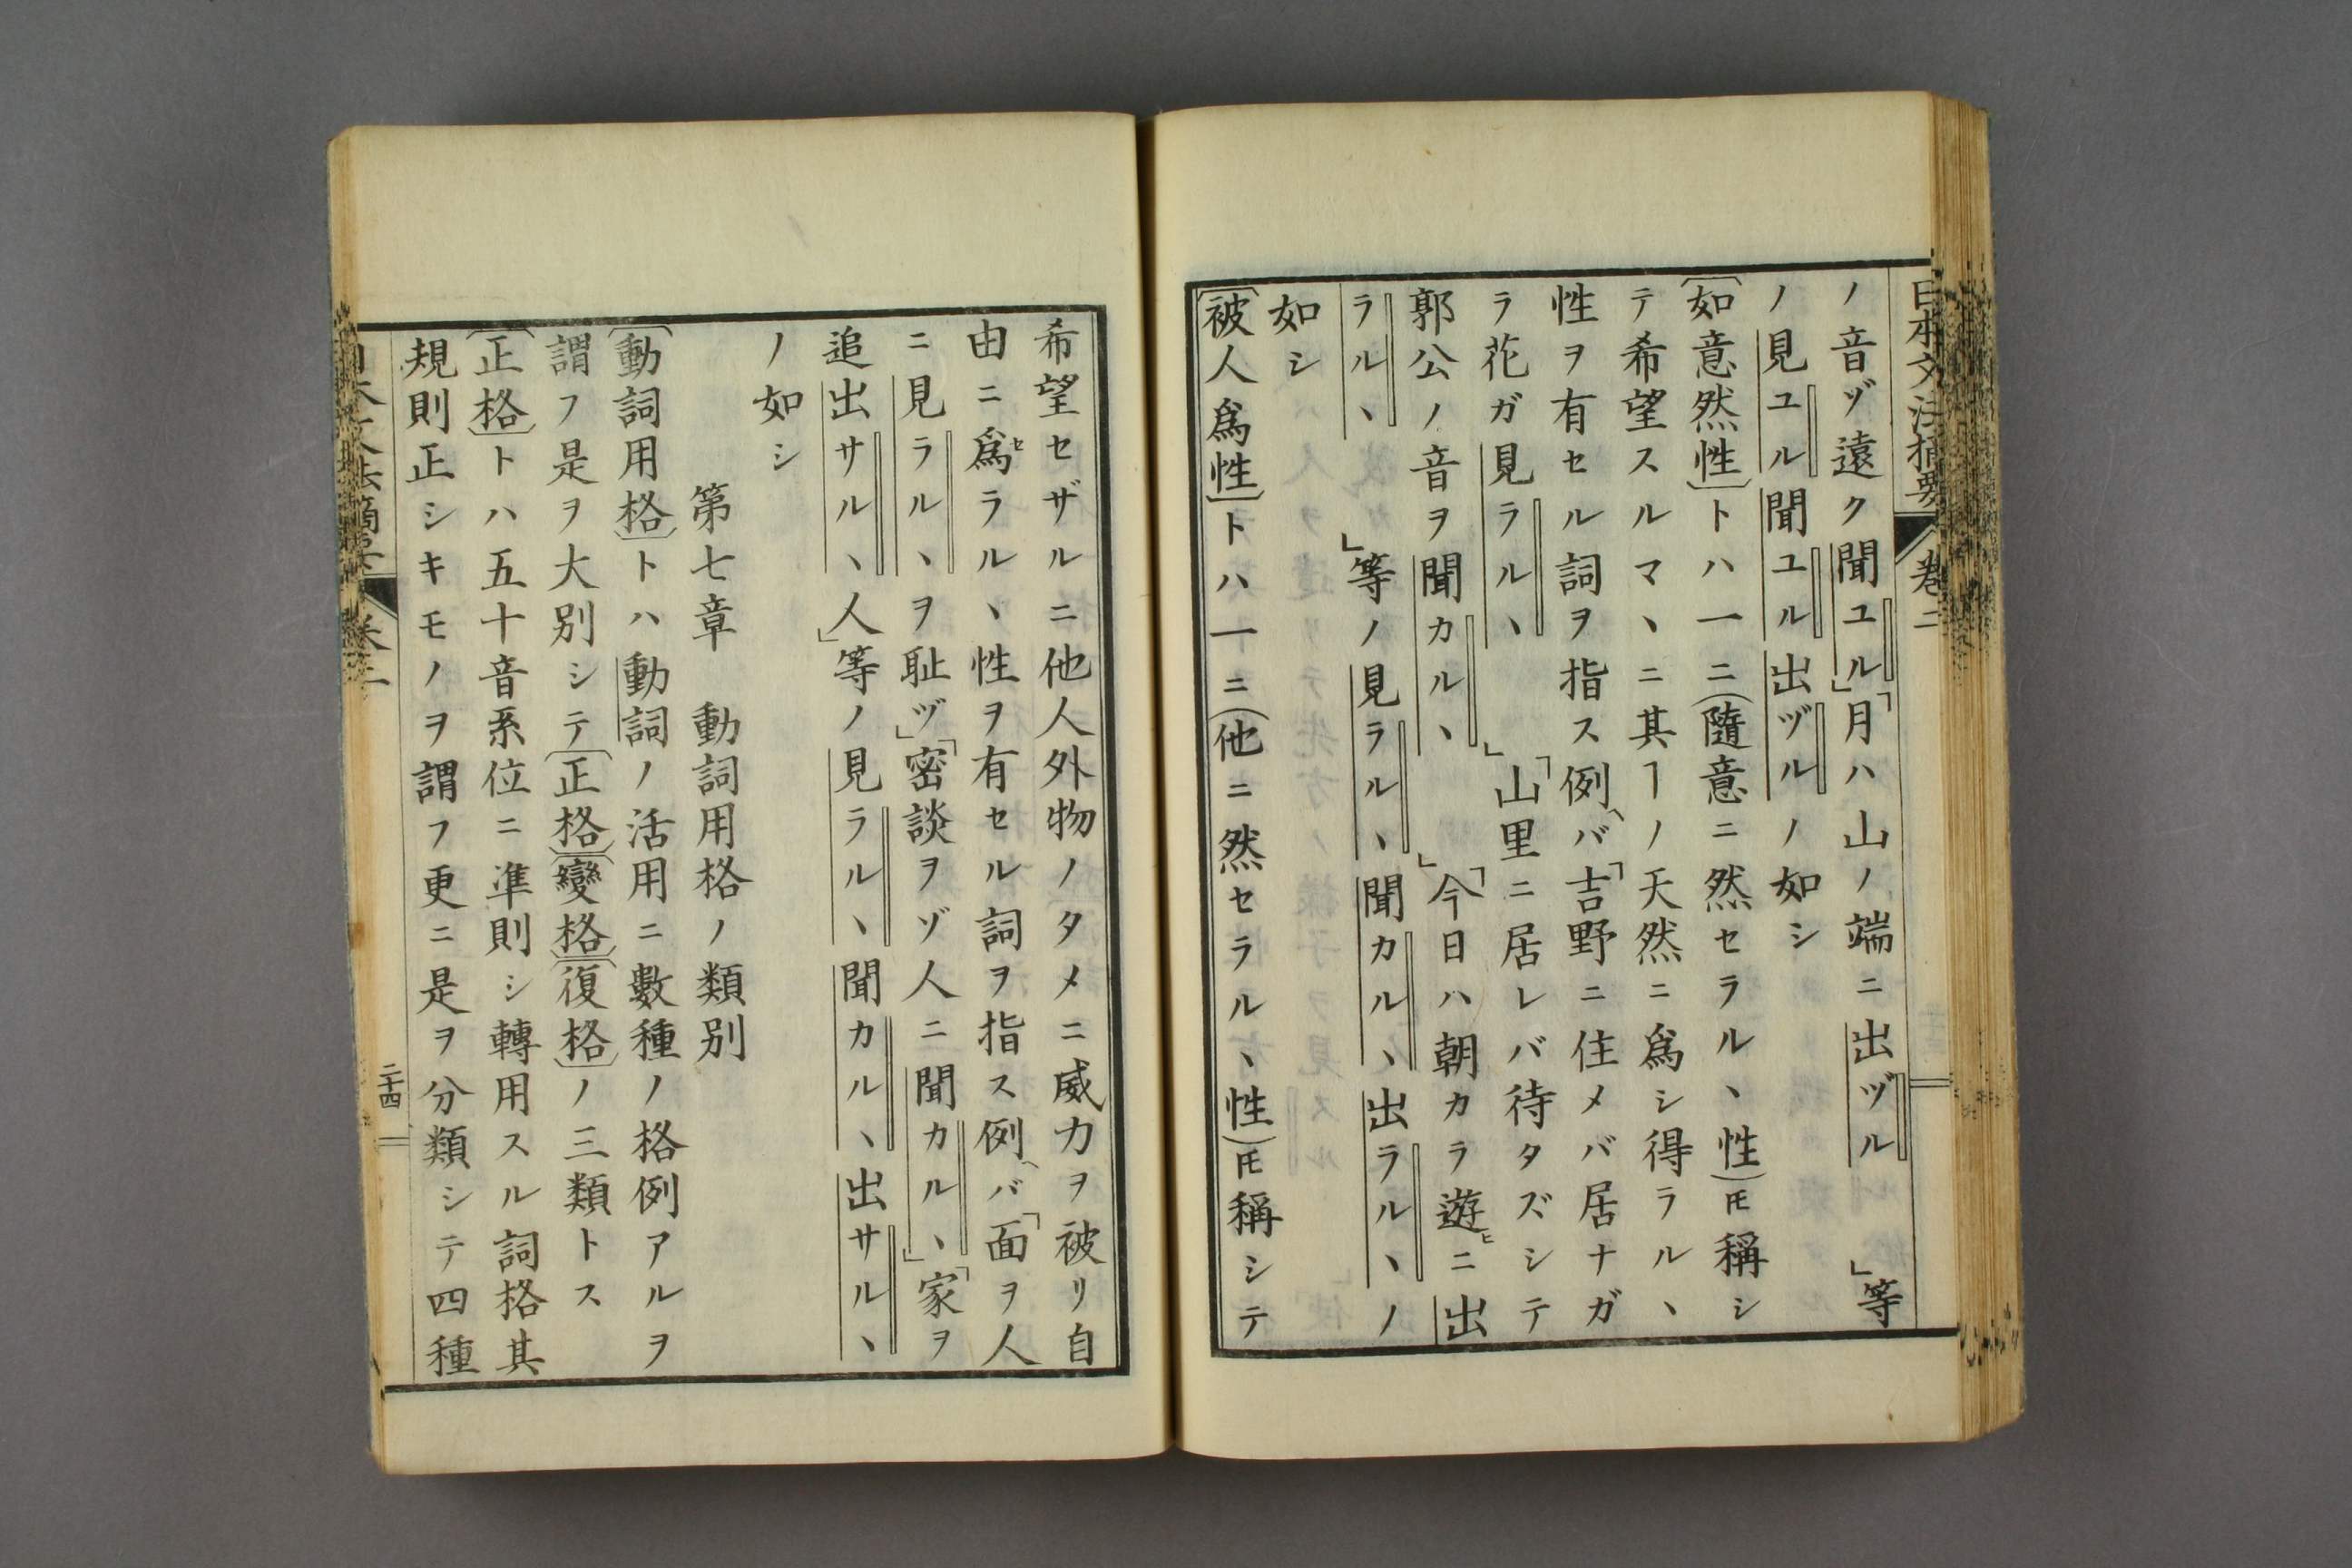 日本文法摘要 卷二
ノ音ヅ遠ク聞ユル」「月ハ山ノ端ニ出ヅル」等
ノ見ユル聞ユル出ヅルノ如シ
〔如意然性〕トハ一ニ(隨意ニ然セラルヽ性)𪜈稱シ
テ希望スルマヽニ其ヿノ天然ニ爲シ得ラルヽ
性ヲ有セル詞ヲ指ス例ヘバ「吉野ニ住メバ居ナガ
ラ花ガ見ラルヽ」「山里ニ居レバ待タズシテ
郭公ノ音ヲ聞カルヽ」「今日ハ朝カラ遊ビニ出
ラルヽ」等ノ見ラルヽ聞カルヽ出ラルヽノ
如シ
〔被人爲性〕トハ一ニ(他ニ然セラルヽ性)𪜈稱シテ
希望セザルニ他人外物ノタメニ威力ヲ被リ自
由ニ爲セラルヽ性ヲ有セル詞ヲ指ス例ヘバ「面ヲ人
ニ見ラルヽヲ耻ヅ」「密談ヲゾ人ニ聞カルヽ」「家ヲ
追出サルヽ人」等ノ見ラルヽ聞カルヽ出サルヽ
ノ如シ
第七章 動詞用格ノ類別
〔動詞用格〕トハ動詞ノ活用ニ數種ノ格例アルヲ
謂フ是ヲ大別シテ〔正格〕〔變格〕〔復格〕ノ三類トス
〔正格〕トハ五十音系位ニ準則シ轉用スル詞格其
規則正シキモノヲ謂フ更ニ是ヲ分類シテ四種
二十四